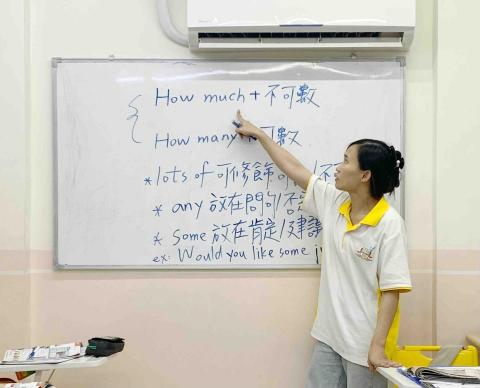 How much + 不可數
How many 可數
*lots of 可修飾可 / 不
* any 放在問句 / 否
* some 放在肯定 / 建議
ex: Would you like some